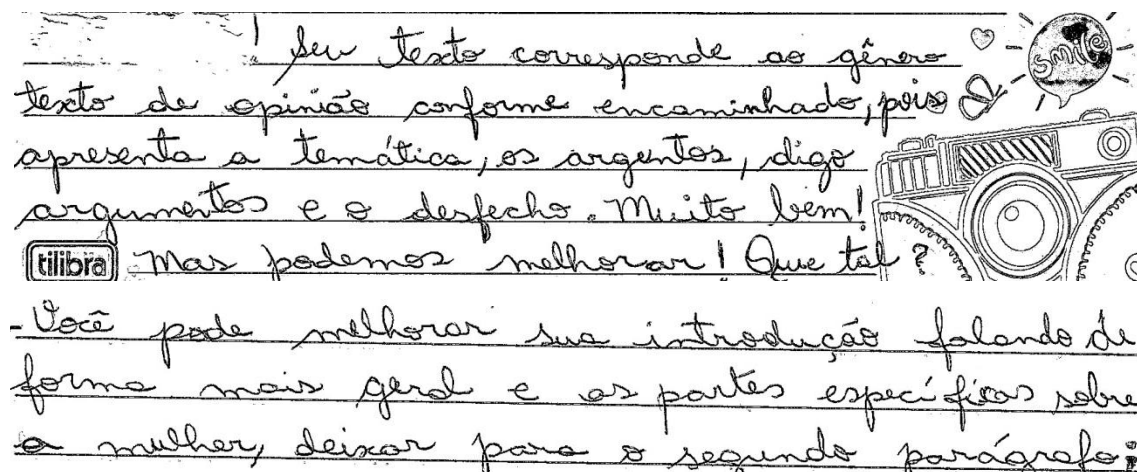 Seu texto corresponde ao gênero
smile
texto de opinião conforme encaminhado, pois
apresenta a temática, os argentos, digo
argumentos e o desfecho. Muito bem!
tilibra Mas podemos melhorar! Que tal?
- Você pode melhorar sua introdução falando de
forma mais geral e as partes específicas sobre
a mulher, deixar para o segundo parágrafo;